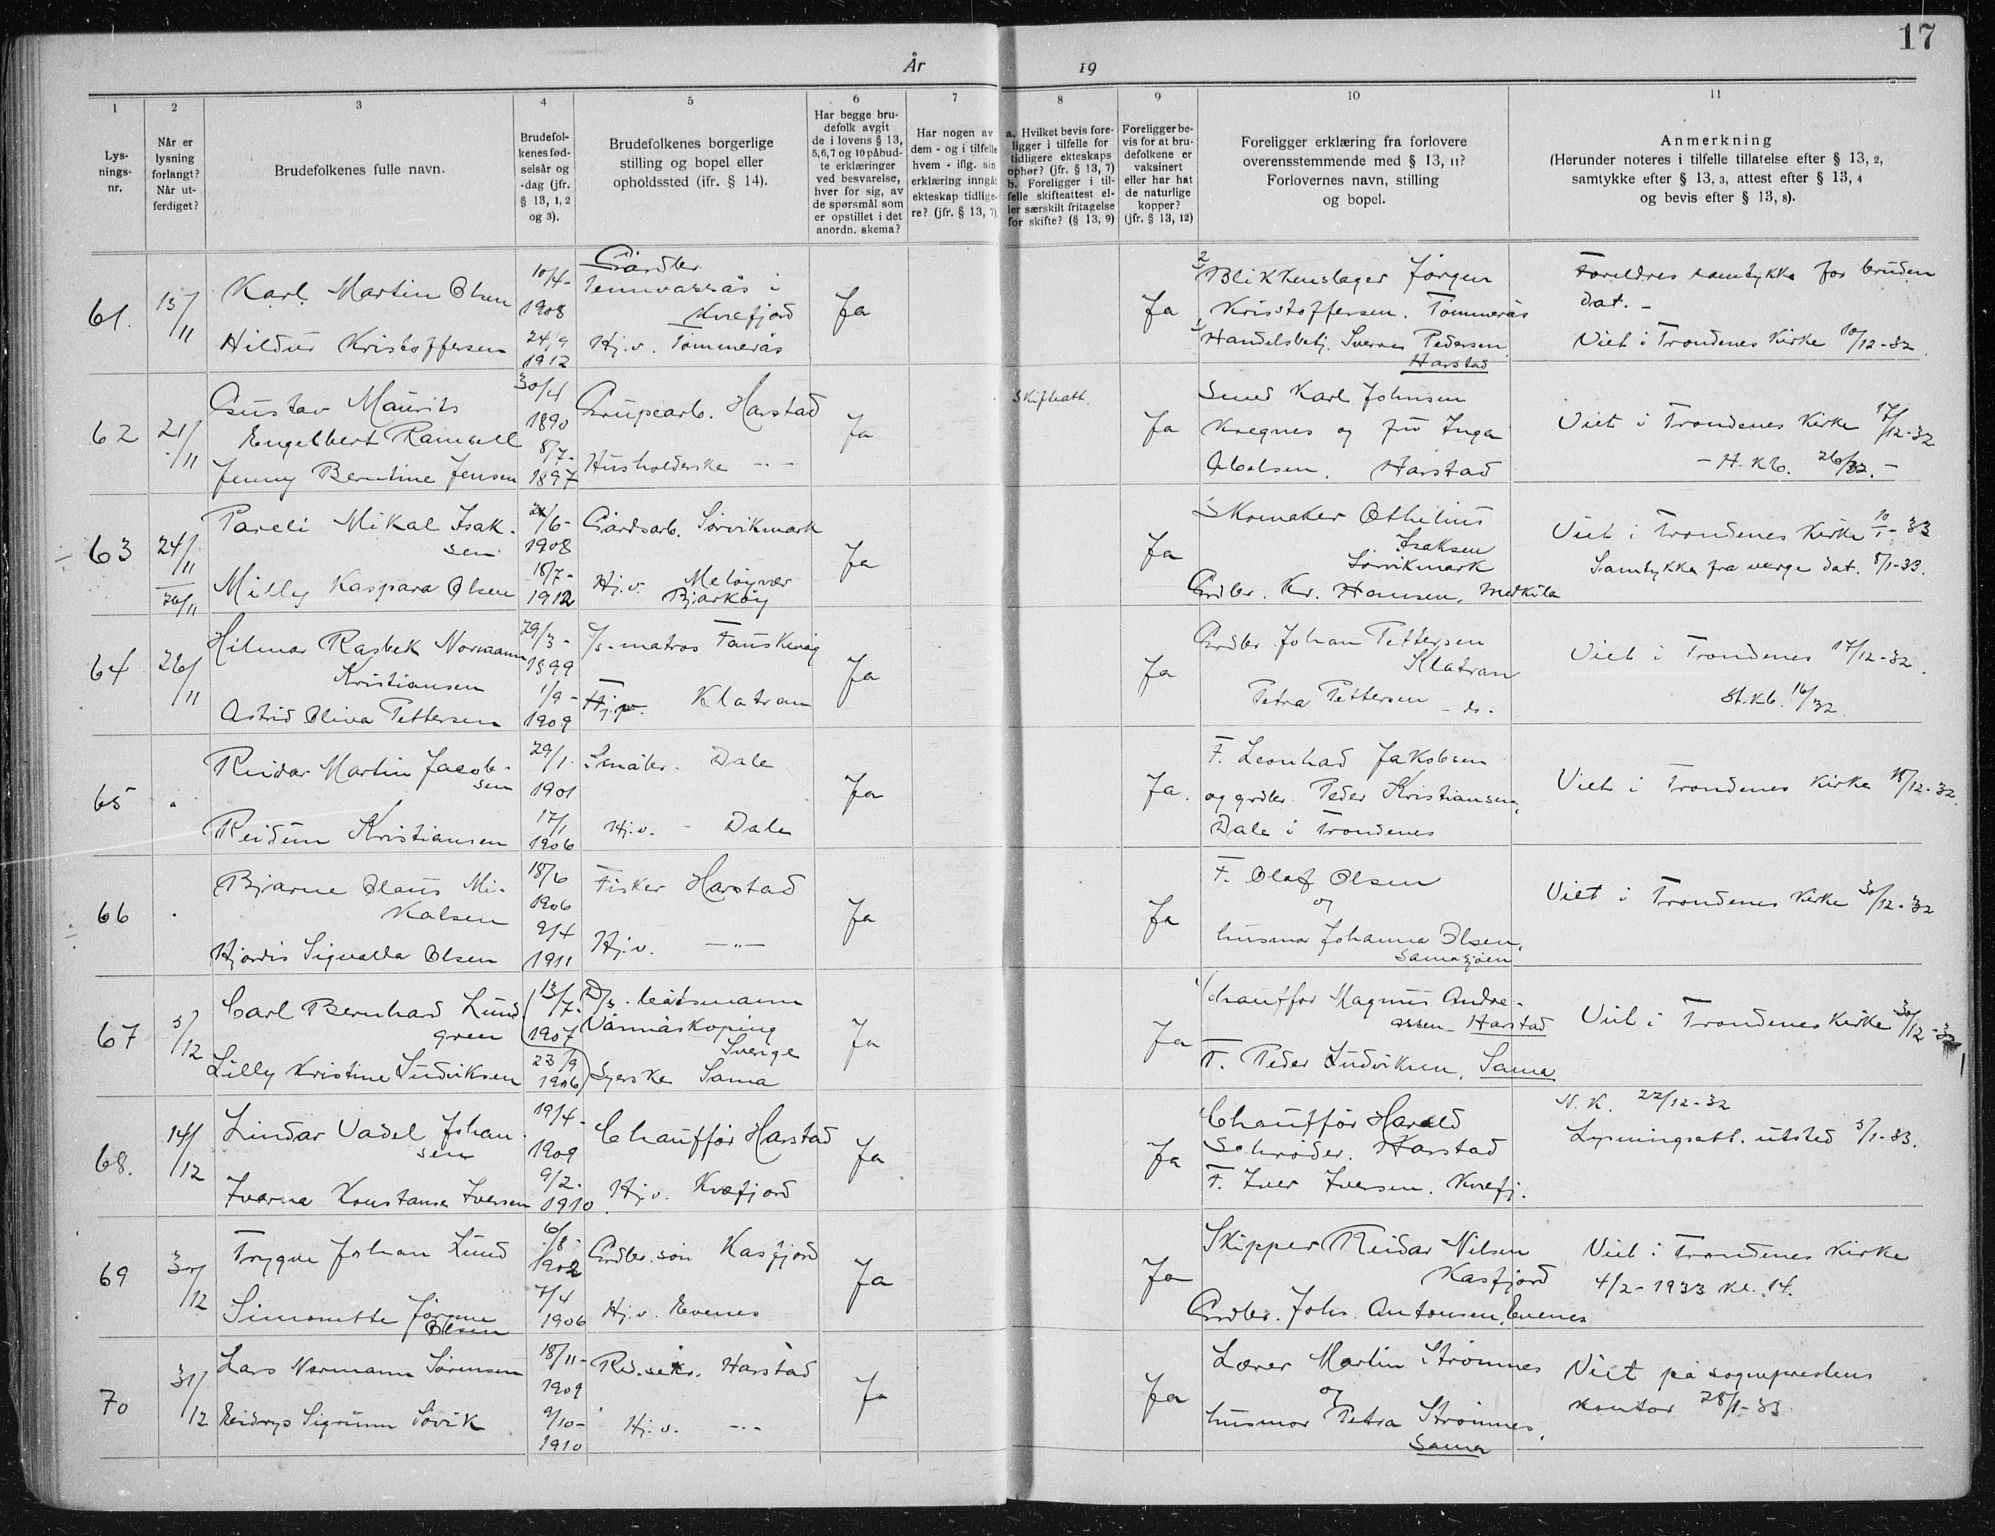 17
År 19
1 2 3 4 5 6 7 8 9 10 11
Lys-
nings-
nr.
Når er
lysning
forlangt?
Når ut-
ferdiget?
Brudefolkenes fulle navn.
Brudefol-
kenes fød-
selsår og
-dag (jfr.
§ 13, 1, 2
og 3).
Brudefolkenes borgerlige
stilling og bopel eller
opholdssted (jfr. § 14).
Har begge bru-
defolk avgit
de i lovens § 13,
5,6,7 og 10 påbud-
te erklæringer
ved besvarelse,
hver for sig, av
de spørsmål som
er opstillet i det
anordn. skema?
Har nogen av
dem - og i tilfelle
hvem - iflg. sin
erklæring inngåt
ekteskap tidlige-
re? (jfr. § 13, 7)
a. Hvilket bevis fore-
ligger i tilfelle for
tidligere ekteskaps
ophør? (jfr. § 13, 7)
b. Foreligger i til-
felle skifteattest el-
ler særskilt fritagelse
for skifte? (§ 13, 9)
Foreligger be-
vis for at bru-
defolkene er
vaksinert
eller har hat
de naturlige
kopper?
(jfr. § 13, 12)
Foreligger erklæring fra forlovere
overensstemmende med § 13, 11?
Forlovernes navn, stilling
og bopel.
Anmerkning
(Herunder noteres i tilfelle tillatelse efter § 13, 2,
samtykke efter § 13, 3, attest efter § 13, 4
og bevis efter § 13, 8).
61. 15/11
Karl Martin Olsen
Hildur Kristoffersen
10/4-
1908
24/9
1912
Gårdbr.
Tennvassås i
Kvæfjord
Hj.v. Tømmerås
Ja
Ja
Blikkenslager Jørgen
Kristoffersen. Tømmerås
Handelsbetj. Sverre Pedersen
Harstad
Foreldres samtykke for bruden
dat. -
Viet i Trondenes Kirke 10/12-32
62 21/11
Gustav Maurits
Engelbert Ramsell
Jenny Berntine Jensen
30/4
1890
8/7-
1897
Grupearb. Harstad
Husholderske -"-
Ja
Skifteatt.
Ja
Smed Karl Johnsen
Kregnes og fru Inga
Abelsen, Harstad
Viet i Trondenes Kirke 17/12-32
- H. Kb. 26/32. -
63 24/11
26/11
Pareli Mikal Isak-
sen
Milly Kaspara Olsen
/6-
1908
18/7-
1912
Gårdsarb. Sørvikmark
Hj.v. Meløyvær
Bjarkøy
Ja
Ja
Skomaker Othelius
Isaksen
Sørvikmark
Grdbr. Kr. Hansen, Medkila
Viet i Trondenes Kirke 10/1-33
Samtykke fra verge dat. 8/1-33.
64 26/11
Hilmar Rasbek Normann
Kristiansen
Astrid Oliva Pettersen
29/3-
1899
1/9-
1909
/s-matros Fauskevåg
Hj.v. Klatran
Ja
Ja
Grdbr. Johan Pettersen
Klatran
Petra Pettersen - do.
Viet i Trondenes 17/12-32.
St.Kb. 16/32.
65 "
Reidar Martin Jacob-
sen
Reidun Kristiansen
29/1.
1901
17/1
1906
Småbr. Dale
Hj.v. - Dale
Ja
Ja.
F. Leonhad Jakobsen
og grdbr. Peder Kristiansen,
Dale i Trondenes
Viet i Trondenes Kirke 18/12-32.
66 "
Bjarne Olaus Mi-
kalsen
Hjørdis Signalla Olsen
18/6
1906
9/4
1911
Fisker Harstad
Hj.v. -"-
Ja
Ja
F. Olaf Olsen
og
husmor Johanna Olsen,
Samasjøen
Viet i Trondenes Kirke 30/12-32
67 5/12
Carl Bernhard Lund-
gren
Lilly Kristine Ludviksen
13/7-
1907
23/9
1906
D/s. båtsmann
Vännäskøping
Sverige
Syerske Sama
Ja
Ja
Chauffør Magnus Andre-
assen Harstad
F. Peder Ludviksen, Sama
Viet i Trondenes Kirke 30/12-32
68. 14/12
Lindar Vadel Johan-
sen
Ivarna Konstanse Iversen
19/4-
1909
9/2-
1910.
Chauffør Harstad
Hj.v. Kvæfjord
Ja
Ja
Chauffør Harald
Schrøder. Harstad
F. Iver Iversen. Kvæfj.
N.K. 22/12-32
Lysningsatt. utsted 3/1-33.
69 30/12
Trygve Johan Lund
Simonette Jørgine
Olsen
6/8-
1902
7/4
1906
Grdbr.søn Kasfjord
Hj.v. Evenes
Ja
Ja
Skipper Reidar Nilsen
Kasfjord
Grdbr. Johs. Antonsen, Evenes
Viet i Trondenes Kirke
4/2-1933 kl. 14.
70 31/12
Lars Normann Sørensen
Eidrys Sigrunn Søvik
18/11-
1909
9/10-
1910
Red.sekr. Harstad
Hj.v. -"-
Ja
Ja
Lærer Martin Strømnes
og
husmor Petra Strømnes,
Sama
Viet på sogneprestens
kontor 28/1-33